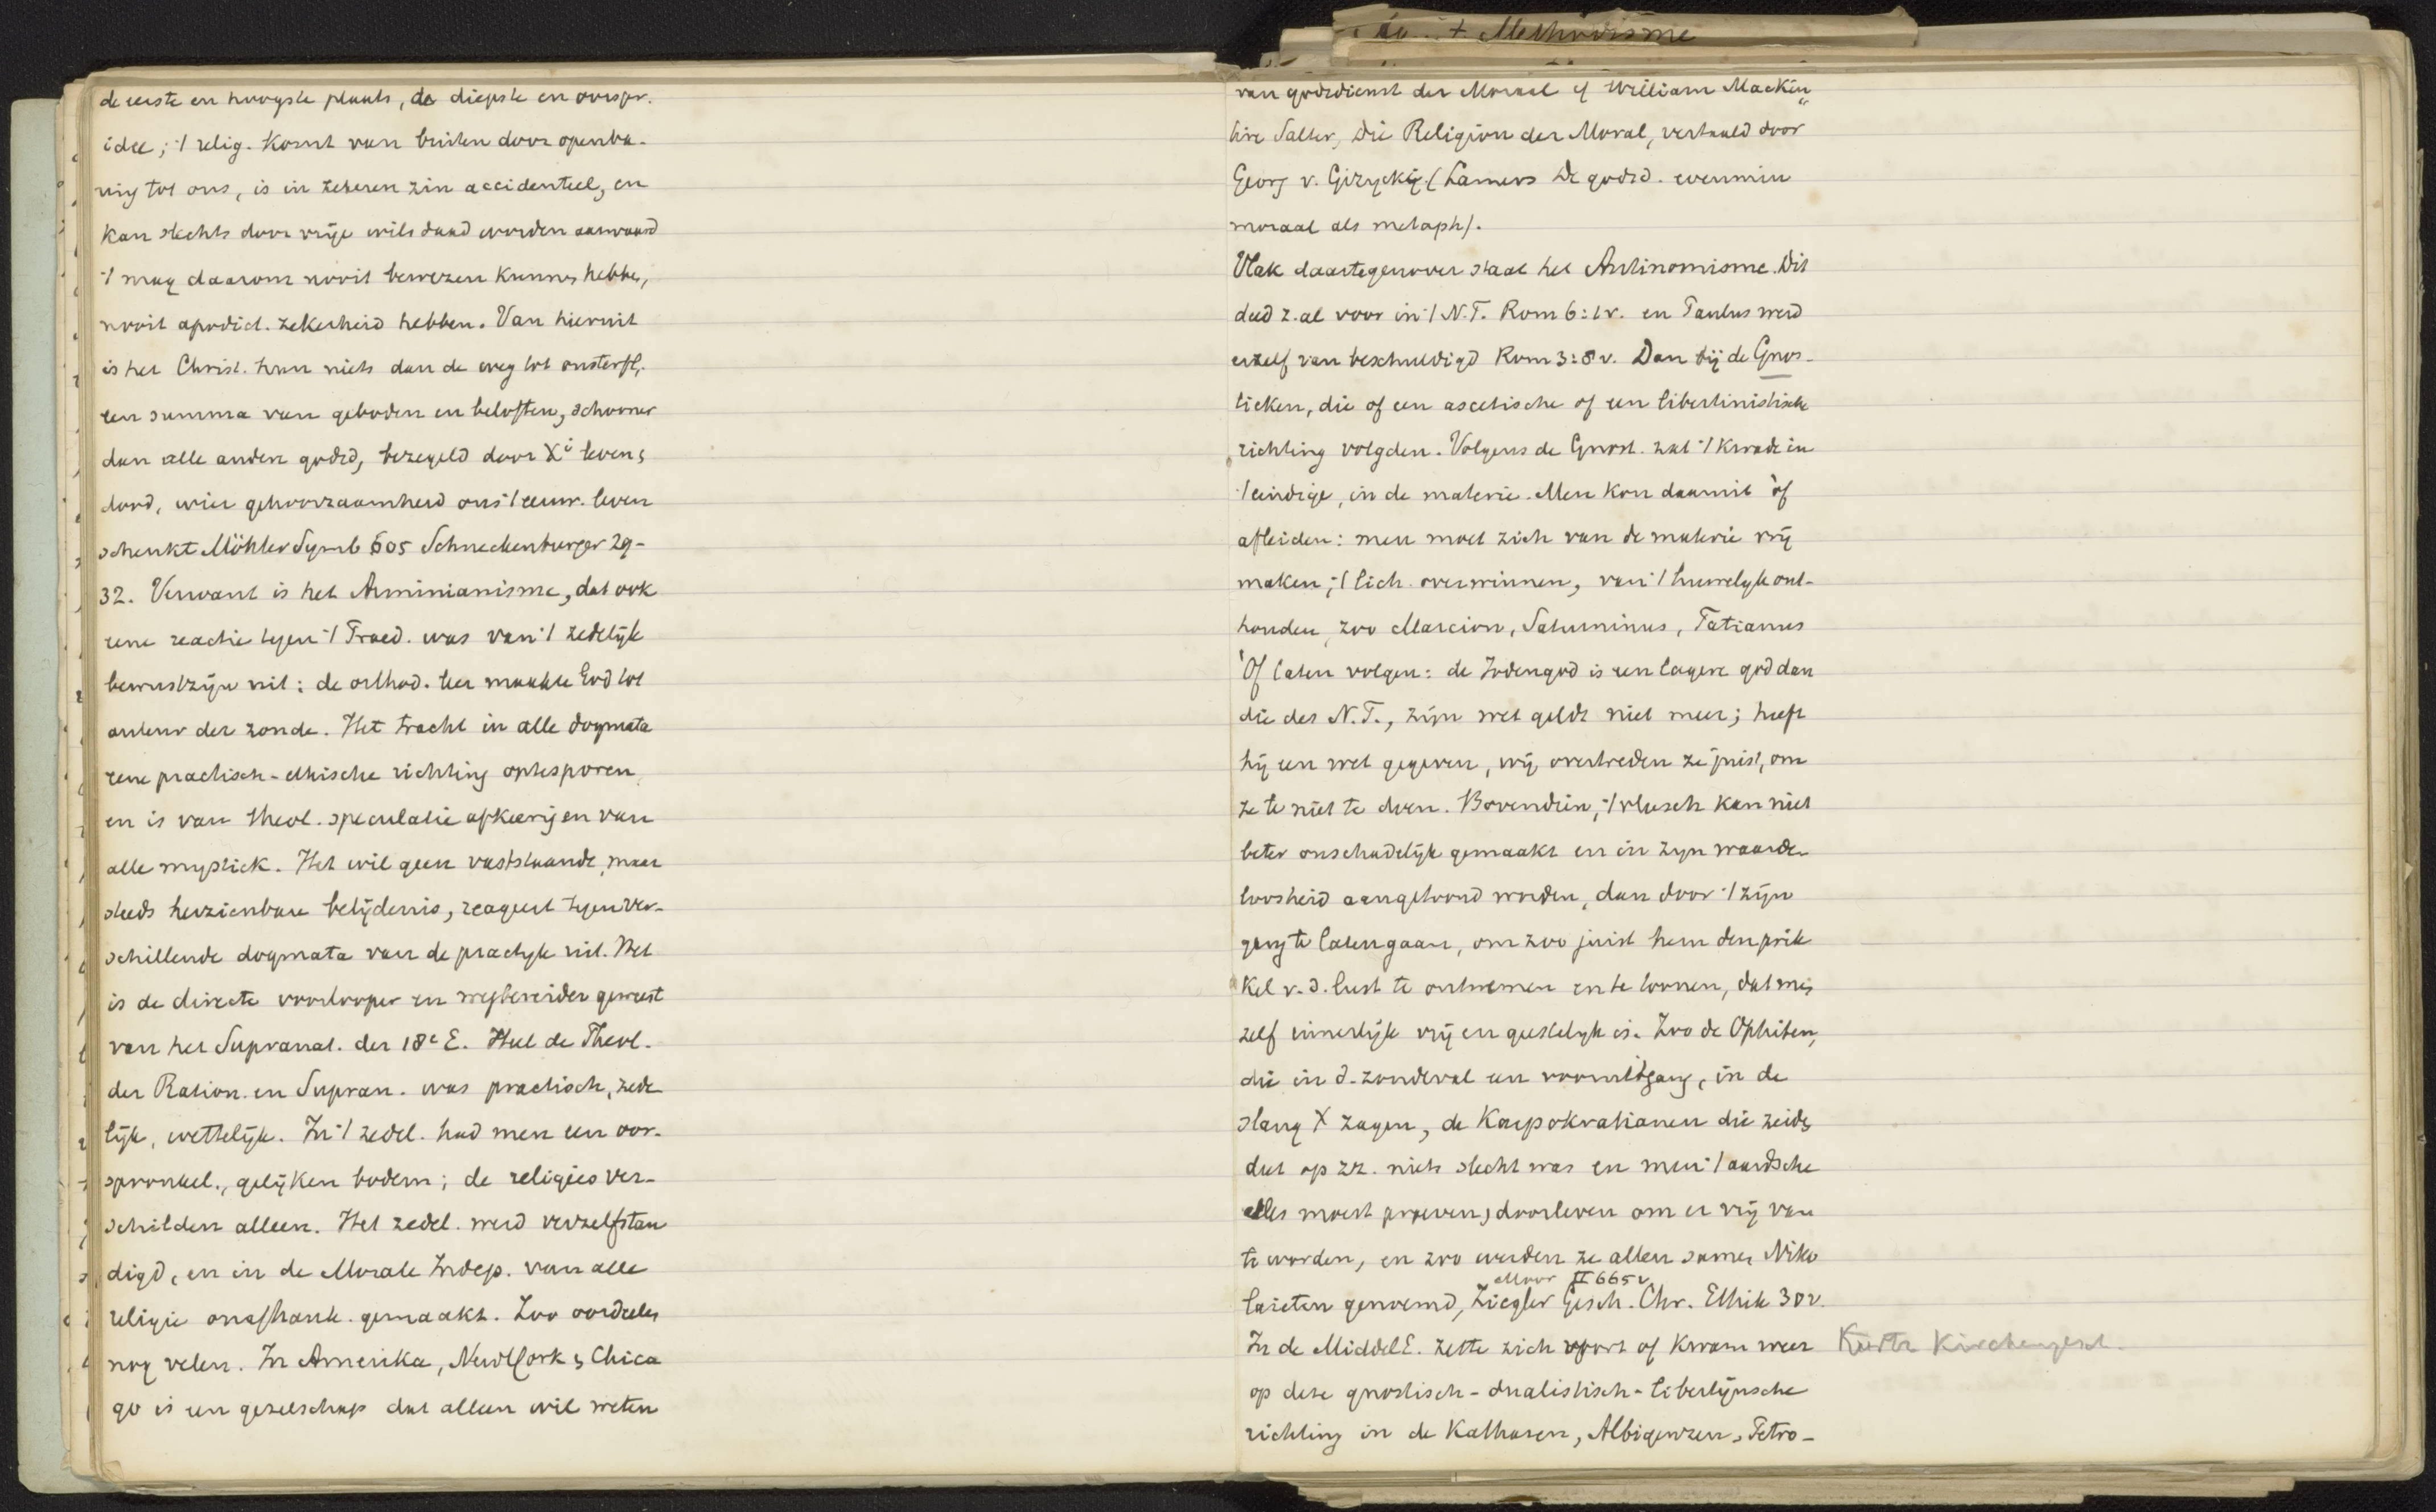 de eerste en hoogste plaats, de diepste en oorspr.
idee; 't relig. komt van buiten door openba-
ring tot ons, is in zekeren zin accidenteel, en
kan slechts door vrije wilsdaad worden aanvaard
't mag daarom nooit bewezen kunnen hebben,
nooit apodict. zekerheid hebben. Van hieruit
is het Christ. hun niets dan de weg tot onsterfl.
een summa van geboden en beloften, schooner
dan alle andere godsd, bezegeld door Xi leven &
dood, wier gehoorzaamheid ons 't eeuw. leven
schenkt Möhler Symb 605 Schneckenburger 29-
32. Verwant is het Arminianisme, dat ook
eene reactie tegen 't Praed. was van 't zedelijk
bewustzijn uit: de orthod. leer maakte God tot
auteur der zonde. Het tracht in alle dogmata
eene practisch-ethische richting optesporen,
en is van theol. speculatie afkeerig en van
alle mystiek. Het wil geen vaststaande, maar
steeds herzienbare belijdenis, reageert tegen ver-
schillende dogmata van de practijk uit. Het
is de directe voorlooper en wegbereider geweest
van het Supranat. der 18e E. Heel de Theol.
der Ration. en Supran. was practisch, zede
lijk, wettelijk. In 't zedel. had men een oor-
spronkel., gelijken bodem; de religies ver-
schilden alleen. Het zedel. werd verzelfstan
digd, en in de Morale Indep. van alle
religie onafhank. gemaakt. Zoo oordeelen
nog velen. In Amerika, NewYork & Chica
go is een gezelschap dat alleen wil weten
+ Methodisme
van godsdienst der Moraal cf William Mackin
tire Salter, Die Religion der Moral, vertaald door
Georg v. Gizycki. (Lamers De godsd. evenmin
moraal als metaph).
Vlak daartegenover staat het Antinomisme. Dit
deed z. al voor in 't N.T. Rom 6:1v. en Paulus werd
erzelf van beschuldigd Rom 3:8v. Dan bij de Gnos-
tieken, die of een ascetische of een libertinistische
richting volgden. Volgens de Gnost. zat 't kwade in
't eindige, in de materie. Men kon daaruit òf
afleiden: men moet zich van de materie vrij
maken, 't lich. overwinnen, van 't huwelijk ont-
houden, zoo Marcion, Saturninus, Tatianus
Òf laten volgen: de Jodengod is een lagere god dan
die des N.T., zijn wet geldt niet meer; heeft
hij een wet gegeven, wij overtreden ze juist, om
ze te niet te doen. Bovendien, 't vleesch kan niet
beter onschadelijk gemaakt en in zijn waarde
loosheid aangetoond worden, dan door 't zijn
gang te laten gaan, om zoo juist hem den prik
kel v. d. lust te ontnemen en te toonen, dat men
zelf innerlijk vrij en geestelijk is. Zoo de Ophiten,
die in d. zondeval een vooruitgang, in de
slang X zagen, de Karpokratianen die zeiden
dat op zz. niets slecht was en men 't aardsche
alles moest proeven, doorleven om er vrij van
te worden, en zoo werden ze allen samen Niko
Moor II 665v
laieten genoemd, Ziegler Gesch. Chr. Ethik 30v.
In de MiddelE. zette zich voort of kwam weer
Kurtz Kirchengesch.
op deze gnostisch-dualistisch-libertijnsche
richting in de Katharen, Albigenzen, Petro-